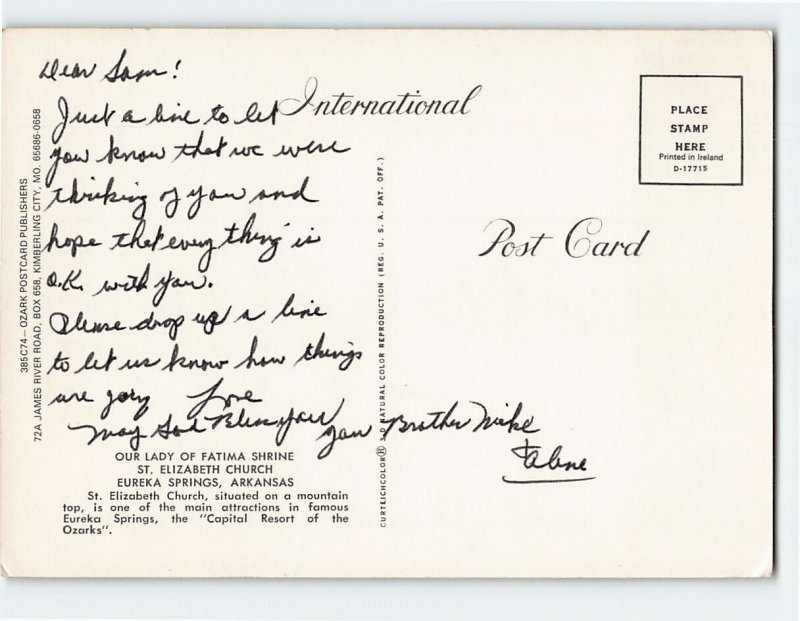 Dear Sam!
Just a line to let
you know that we were
thinking of you and
hope that every thing is
O.K. with you.
Please drop us a line
to let us know how things
are going Love
May God Bless you
Your Brother Mike
&
International
PLACE
STAMP
HERE
Printed in Ireland
D-17715
Post Card
385C74 – OZARK POSTCARD PUBLISHERS
72A JAMES RIVER ROAD, BOX 658, KIMBERLING CITY, MO. 65686-0658
CURTEICHCOLOR® 3-D NATURAL COLOR REPRODUCTION (REG. U. S. A. PAT. OFF.)
OUR LADY OF FATIMA SHRINE
ST. ELIZABETH CHURCH
EUREKA SPRINGS, ARKANSAS
St. Elizabeth Church, situated on a mountain
top, is one of the main attractions in famous
Eureka Springs, the "Capital Resort of the
Ozarks".